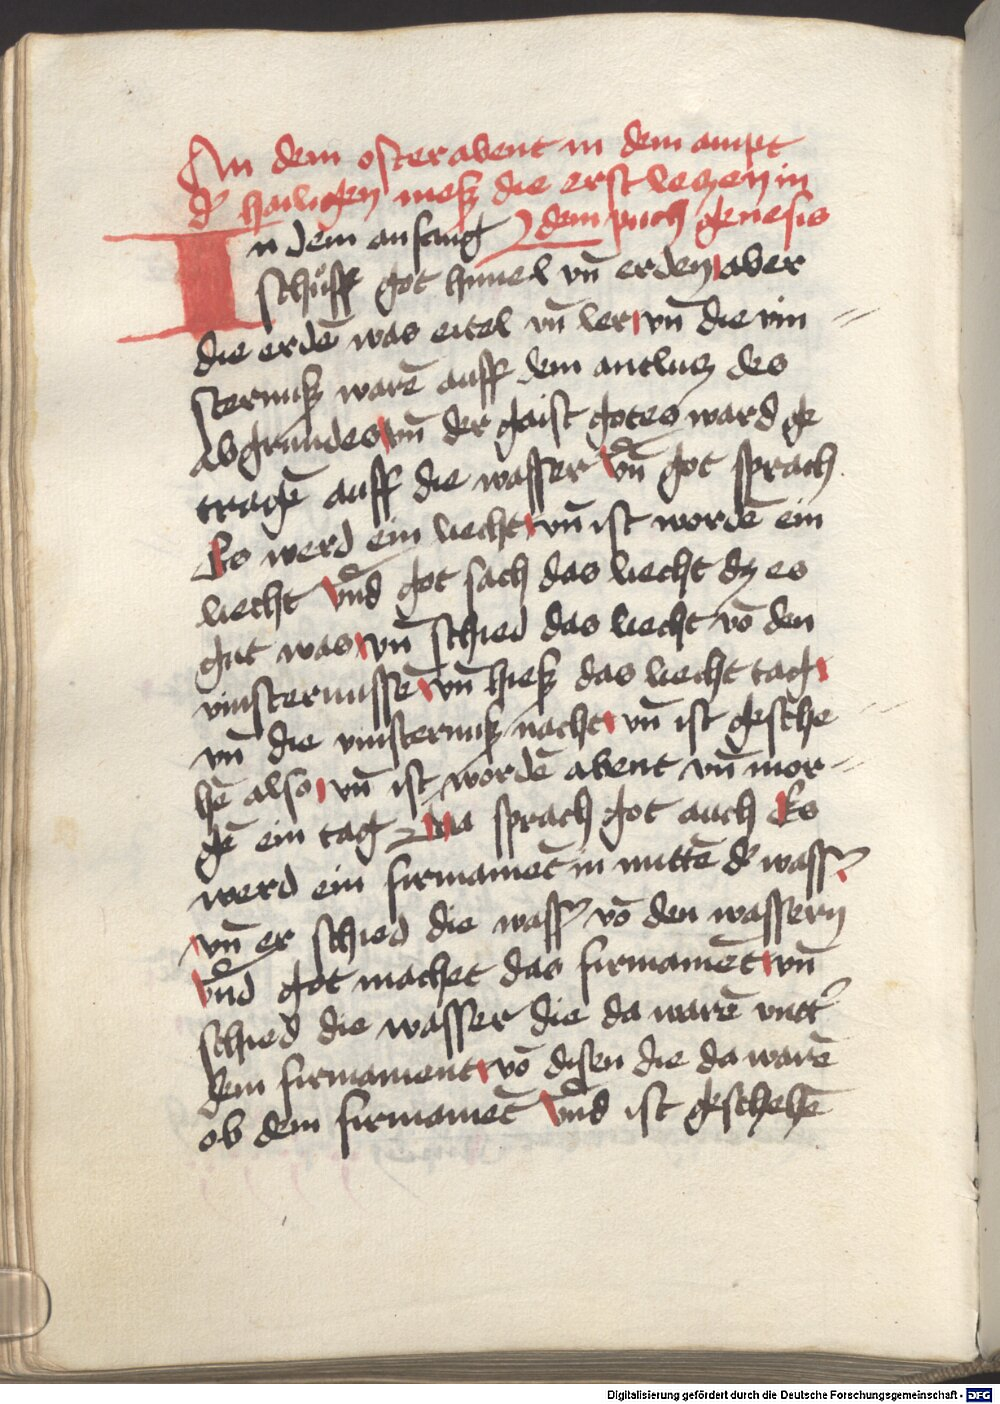 An dem osterabent in dem ampt
d͛ hailigen mesz die erst leczen in
dem puch genesis
In dem anfang
schůff got himel vn̄ erden aber
die erdē was eitel vn̄ ler vn̄ die vin
sternusz warē auff dem antlucz des
abgrundes vn̄ der gaist gotes ward ge
tragē auff die wasser vn̄ got sprach
Es werd ein liecht vn̄ ist wordē ein
liecht vn̄d got sach das liecht dz es
gut was vn̄ schied das liecht vō den
vinsternussē vn̄ hiesz das liecht tag
vn̄ die vinsternusz nacht vn̄ ist gesche
hē also vn̄ ist wordē abent vn̄ mor-
gē ein tag Da sprach got auch Es
werd ein firmamēt in mittē d͛ wass͛
vn̄ er schied die wass͛ vō den wassern
vn̄d got machet das firmamēt vn̄
schied die wasser die da warē vntt͛
dem firmament vō disen die da warē
ob dem firmamēt vn̄d ist geschehē
Digitalisierung gefördert durch die Deutsche Forschungsgemeinschaft - DFG